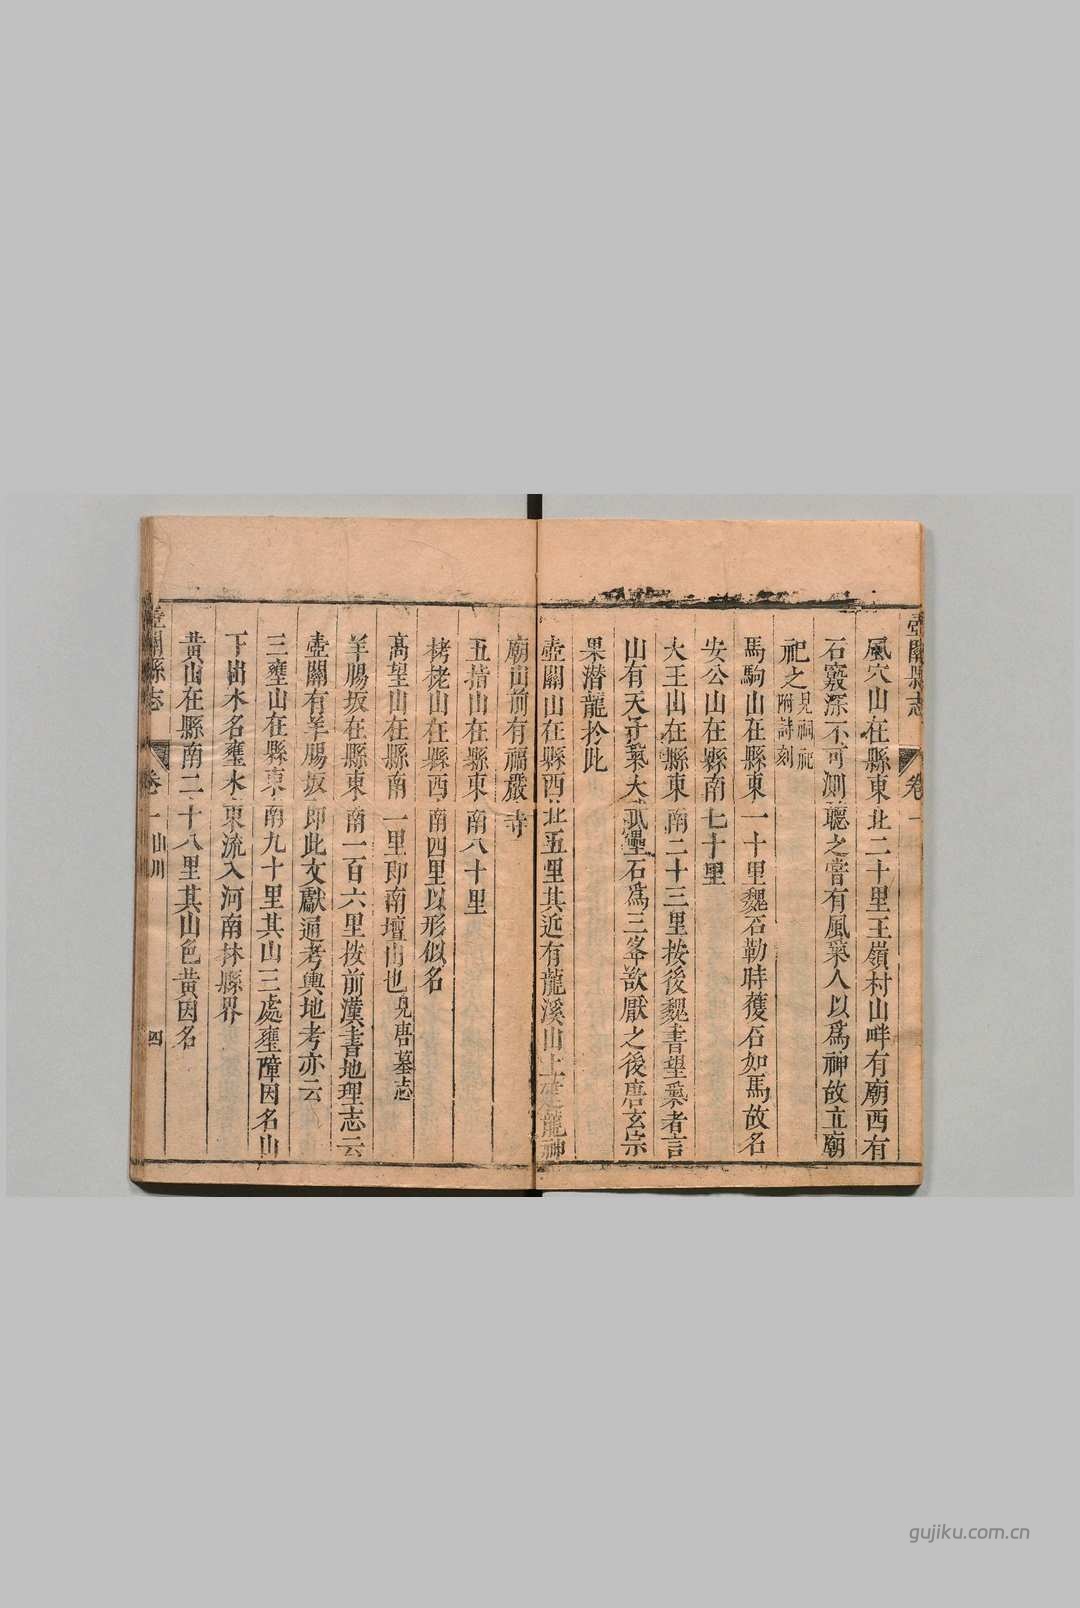 壺關縣志
卷一
風穴山在縣東北二十里王嶺村山畔有廟西有
石竅深不可測聽之嘗有風氣人以爲神故立廟
祀之見祠祀附詩刻
馬駒山在縣東一十里魏石勒時獲石如馬故名
安公山在縣南七十里
大王山在縣東南二十三里按後魏書望氣者言
山有天子氣大武壘石爲三峯欲厭之後唐玄宗
果潛龍於此
壺關山在縣西北五里其近有龍溪山上建龍神
廟山前有福嚴寺
五指山在縣東南八十里
栲栳山在縣西南四里以形似名
高望山在縣南一里即南壇山也見唐墓志
羊腸坂在縣東南一百六里按前漢書地理志云
壺關有羊腸坂即此文獻通考輿地考亦云
三壅山在縣東南九十里其山三處壅障因名山
下出水名壅水東流入河南林縣界
黃山在縣南二十八里其山色黃因名
壺關縣志
卷一
山川
四
gujiku.com.cn